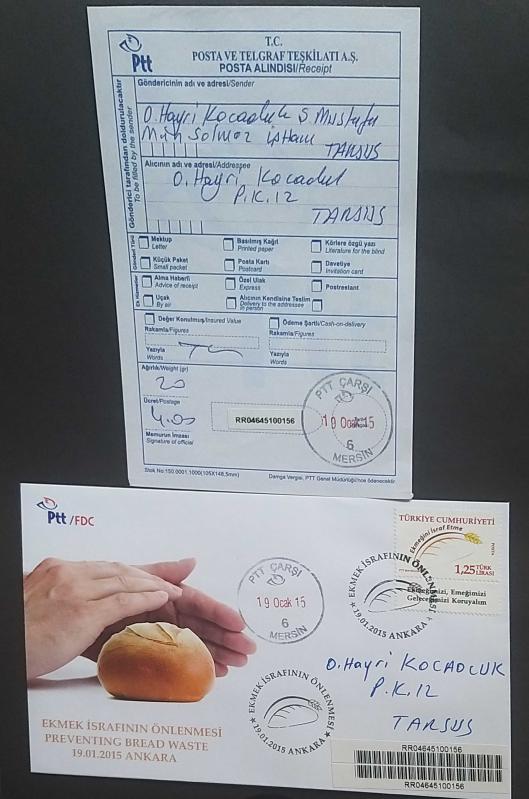 Ptt
T.C.
POSTA VE TELGRAF TEŞKİLATI A.Ş.
POSTA ALINDISI/Receipt
Gönderici tarafından doldurulacaktır
To be filled by the sender
Göndericinin adı ve adresi/Sender
O.Hayri Kocaoluk Ş. Mustafa
Mah Solmaz işhanı
TARSUS
Alıcının adı ve adresi/Addressee
O. Hayri Kocaoluk
P.K.12
TARSUS
Gönderi Türü
Mektup
Letter
Basılmış Kağıt
Printed paper
Körlere özgü yazı
Literature for the blind
Küçük Paket
Small packet
Posta Kartı
Postcard
Davetiye
Invitation card
Ek Hizmetler
Alma Haberli
Advice of receipt
Özel Ulak
Express
Postrestant
Uçak
By air
Alıcının Kendisine Teslim
Delivery to the addressee in person
Değer Konulmuş/Insured Value
Ödeme Şartlı/Cash-on-delivery
Rakamla/Figures
Rakamla/Figures
Yazıyla
Words
Yazıyla
Words
Ağırlık/Weight (gr)
20
Ücret/Postage
4.00
RR04645100156
Memurun İmzası
Signature of official
PTT ÇARŞI
19 Ocak 15
6
MERSİN
Stok No:150.0001.1000(105X148,5mm)
Damga Vergisi, PTT Genel Müdürlüğü'nce ödenecektir.
Ptt/FDC
TÜRKİYE CUMHURİYETİ
Ekmeğini İsraf Etme
POSTA
1,25 TÜRK LİRASI
Ekmeğimizi, Emeğimizi
Geleceğimizi Koruyalım
EKMEK İSRAFININ ÖNLENMESİ
19.01.2015 ANKARA
PTT ÇARŞI
19 Ocak 15
6
MERSİN
O.Hayri KOCAOLUK
P.K.12
TARSUS
EKMEK İSRAFININ ÖNLENMESİ
19.01.2015 ANKARA
EKMEK İSRAFININ ÖNLENMESİ
PREVENTING BREAD WASTE
19.01.2015 ANKARA
RR04645100156
RR04645100156